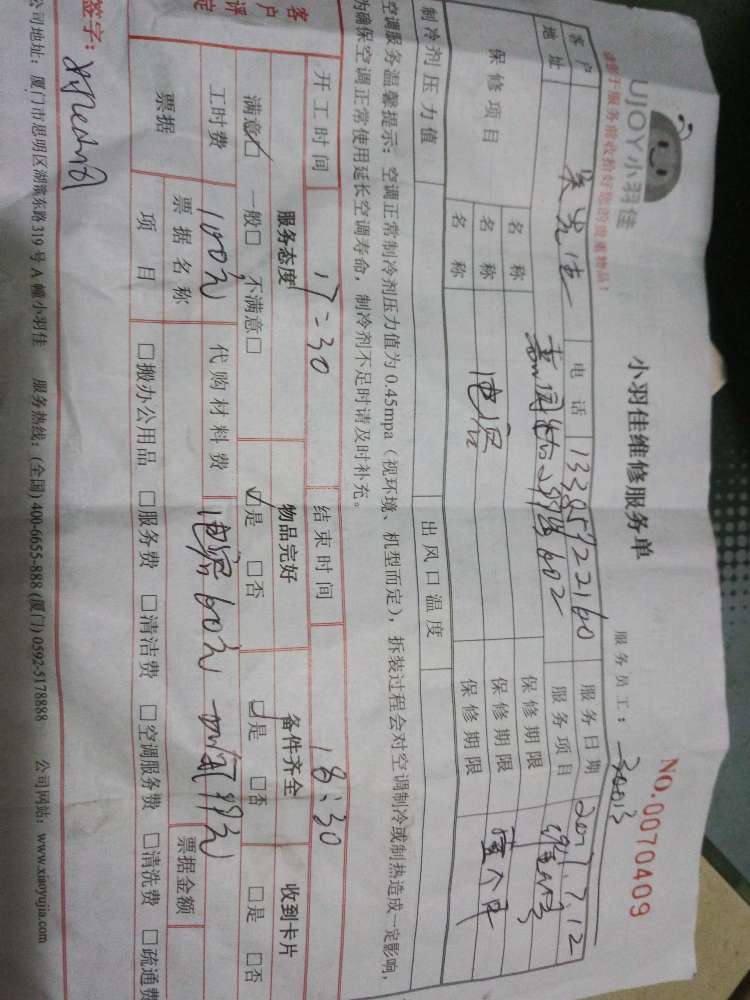 UJOY小羽佳
小羽佳维修服务单
NO.0070409
服务员工：30013
客户 吴先生 电话 13385922160 服务日期 2017.7.12
地址 602 服务项目
保修项目 名称 保修期限
名称 电容 保修期限 壹个月
名称 保修期限
制冷剂压力值 出风口温度
空调服务温馨提示：空调正常制冷剂压力值为0.45mpa（视环境、机型而定），拆装过程会对空调制冷或制热造成一定影响，
为确保空调正常使用延长空调寿命，制冷剂不足时请及时补充。
开工时间 17:30 结束时间 18:30
客户评定 服务态度 物品完好 备件齐全 收到卡片
满意☑ 一般□ 不满意□ ☑是 □否 ☑是 □否 □是 □否
工时费 100元 代购材料费 电容60元
票据 票据名称 票据金额
项目 □搬办公用品 □服务费 □清洁费 □空调服务费 □清洗费 □疏通费
公司地址：厦门市思明区湖滨东路319号A幢小羽佳 服务热线：(全国)400-6655-888 (厦门)0592-5178888 公司网站：www.xiaoyujia.com
签字：